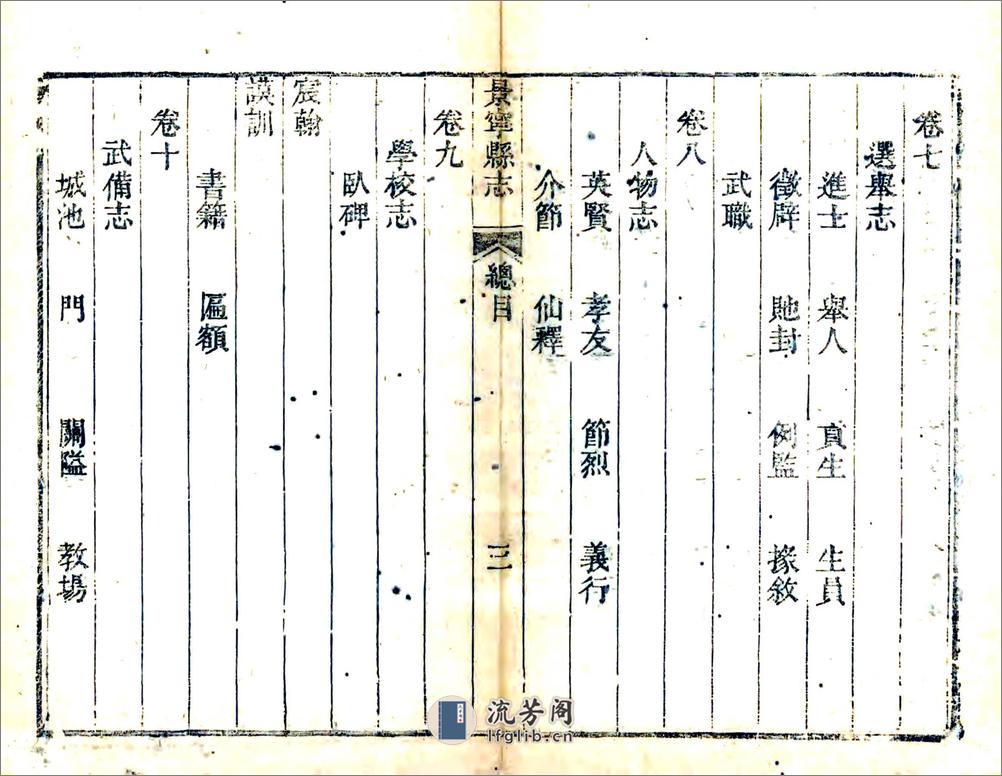 卷七
選舉志
進士 舉人 貢生 生員
徵辟 貤封 例監 掾敘
武職
卷八
人物志
英賢 孝友 節烈 義行
介節 仙釋
景寧縣志 總目 三
卷九
學校志
臥碑
宸翰
謨訓
書籍 匾額
卷十
武備志
城池 門 關隘 教場
流芳阁
lfglib.cn